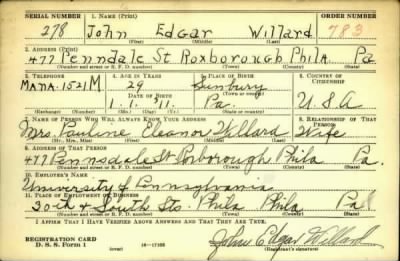 SERIAL NUMBER 1. NAME (Print) ORDER NUMBER
278 John Edgar Willard 783
(First) (Middle) (Last)
2. ADDRESS (Print)
477 Penndale St Roxborough Phila Pa.
(Number and street or R. F. D. number) (Town) (County) (State)
3. TELEPHONE 4. AGE IN YEARS 5. PLACE OF BIRTH 6. COUNTRY OF CITIZENSHIP
MANA. 1521 M 29 Sunbury
DATE OF BIRTH (Town or county)
1. 1. 11. Pa. U.S.A
(Exchange) (Number) (Mo.) (Day) (Yr.) (State or country)
7. NAME OF PERSON WHO WILL ALWAYS KNOW YOUR ADDRESS 8. RELATIONSHIP OF THAT PERSON
Mrs. Pauline Eleanor Willard Wife
(Mr., Mrs., Miss) (First) (Middle) (Last)
9. ADDRESS OF THAT PERSON
477 Pennsdale St Roxborough Phila Pa.
(Number and street or R. F. D. number) (Town) (County) (State)
10. EMPLOYER'S NAME
University of Pennsylvania
11. PLACE OF EMPLOYMENT OR BUSINESS
30th & South Sts. Phila Phila Pa.
(Number and street or R. F. D. number) (Town) (County) (State)
I AFFIRM THAT I HAVE VERIFIED ABOVE ANSWERS AND THAT THEY ARE TRUE.
REGISTRATION CARD
D. S. S. FORM 1 (over) 16-17105 John Edgar Willard
(Registrant's signature)